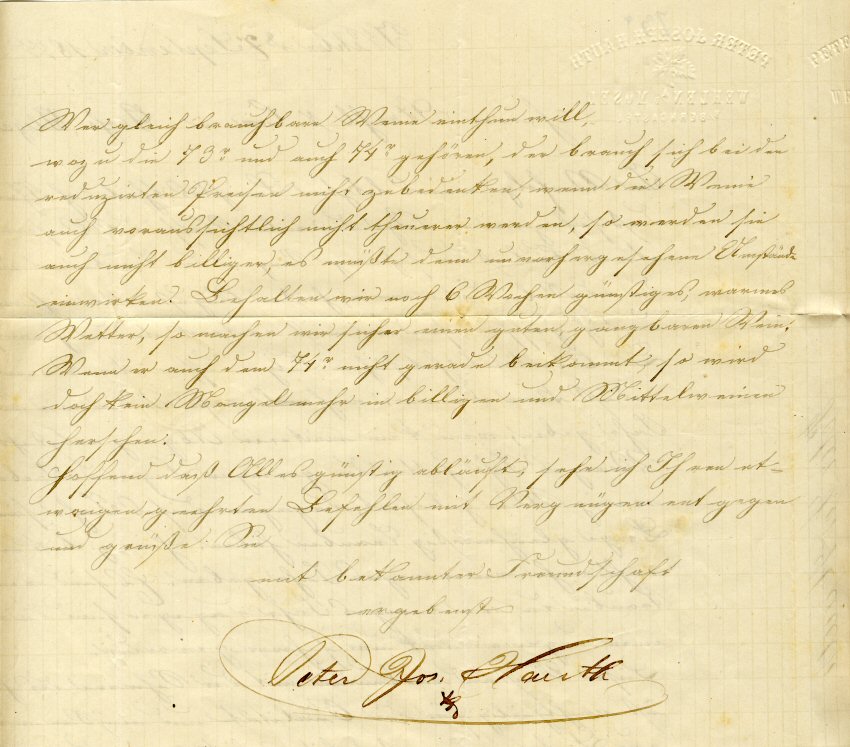 Wer gleich brauchbare Weine einthun will,
wozu die 73r und auch 74r gehören, der brauch sich bei den
reduzirten Preisen nicht zubedenken, wenn die Weine
auch voraussichtlich nicht theuerer werden, so werden sie
auch nicht billiger, es müßte denn unvorhergesehene Umstände
einwirken. Behalten wir noch 6 Wochen günstiges, warmes
Wetter, so machen wir sicher einen guten, gangbaren Wein.
Wenn er auch dem 74r nicht gerade beikommt, so wird
doch kein Mangel mehr in billigen und Mittelweinen
herschen.
Hoffend daß Alles günstig abläuft, sehe ich Ihren et-
waigen geehrten Befehlen mit Vergnügen entgegen
und grüße Sie
mit bekannter Freundschaft
ergebenst
Peter Jos. Hauth